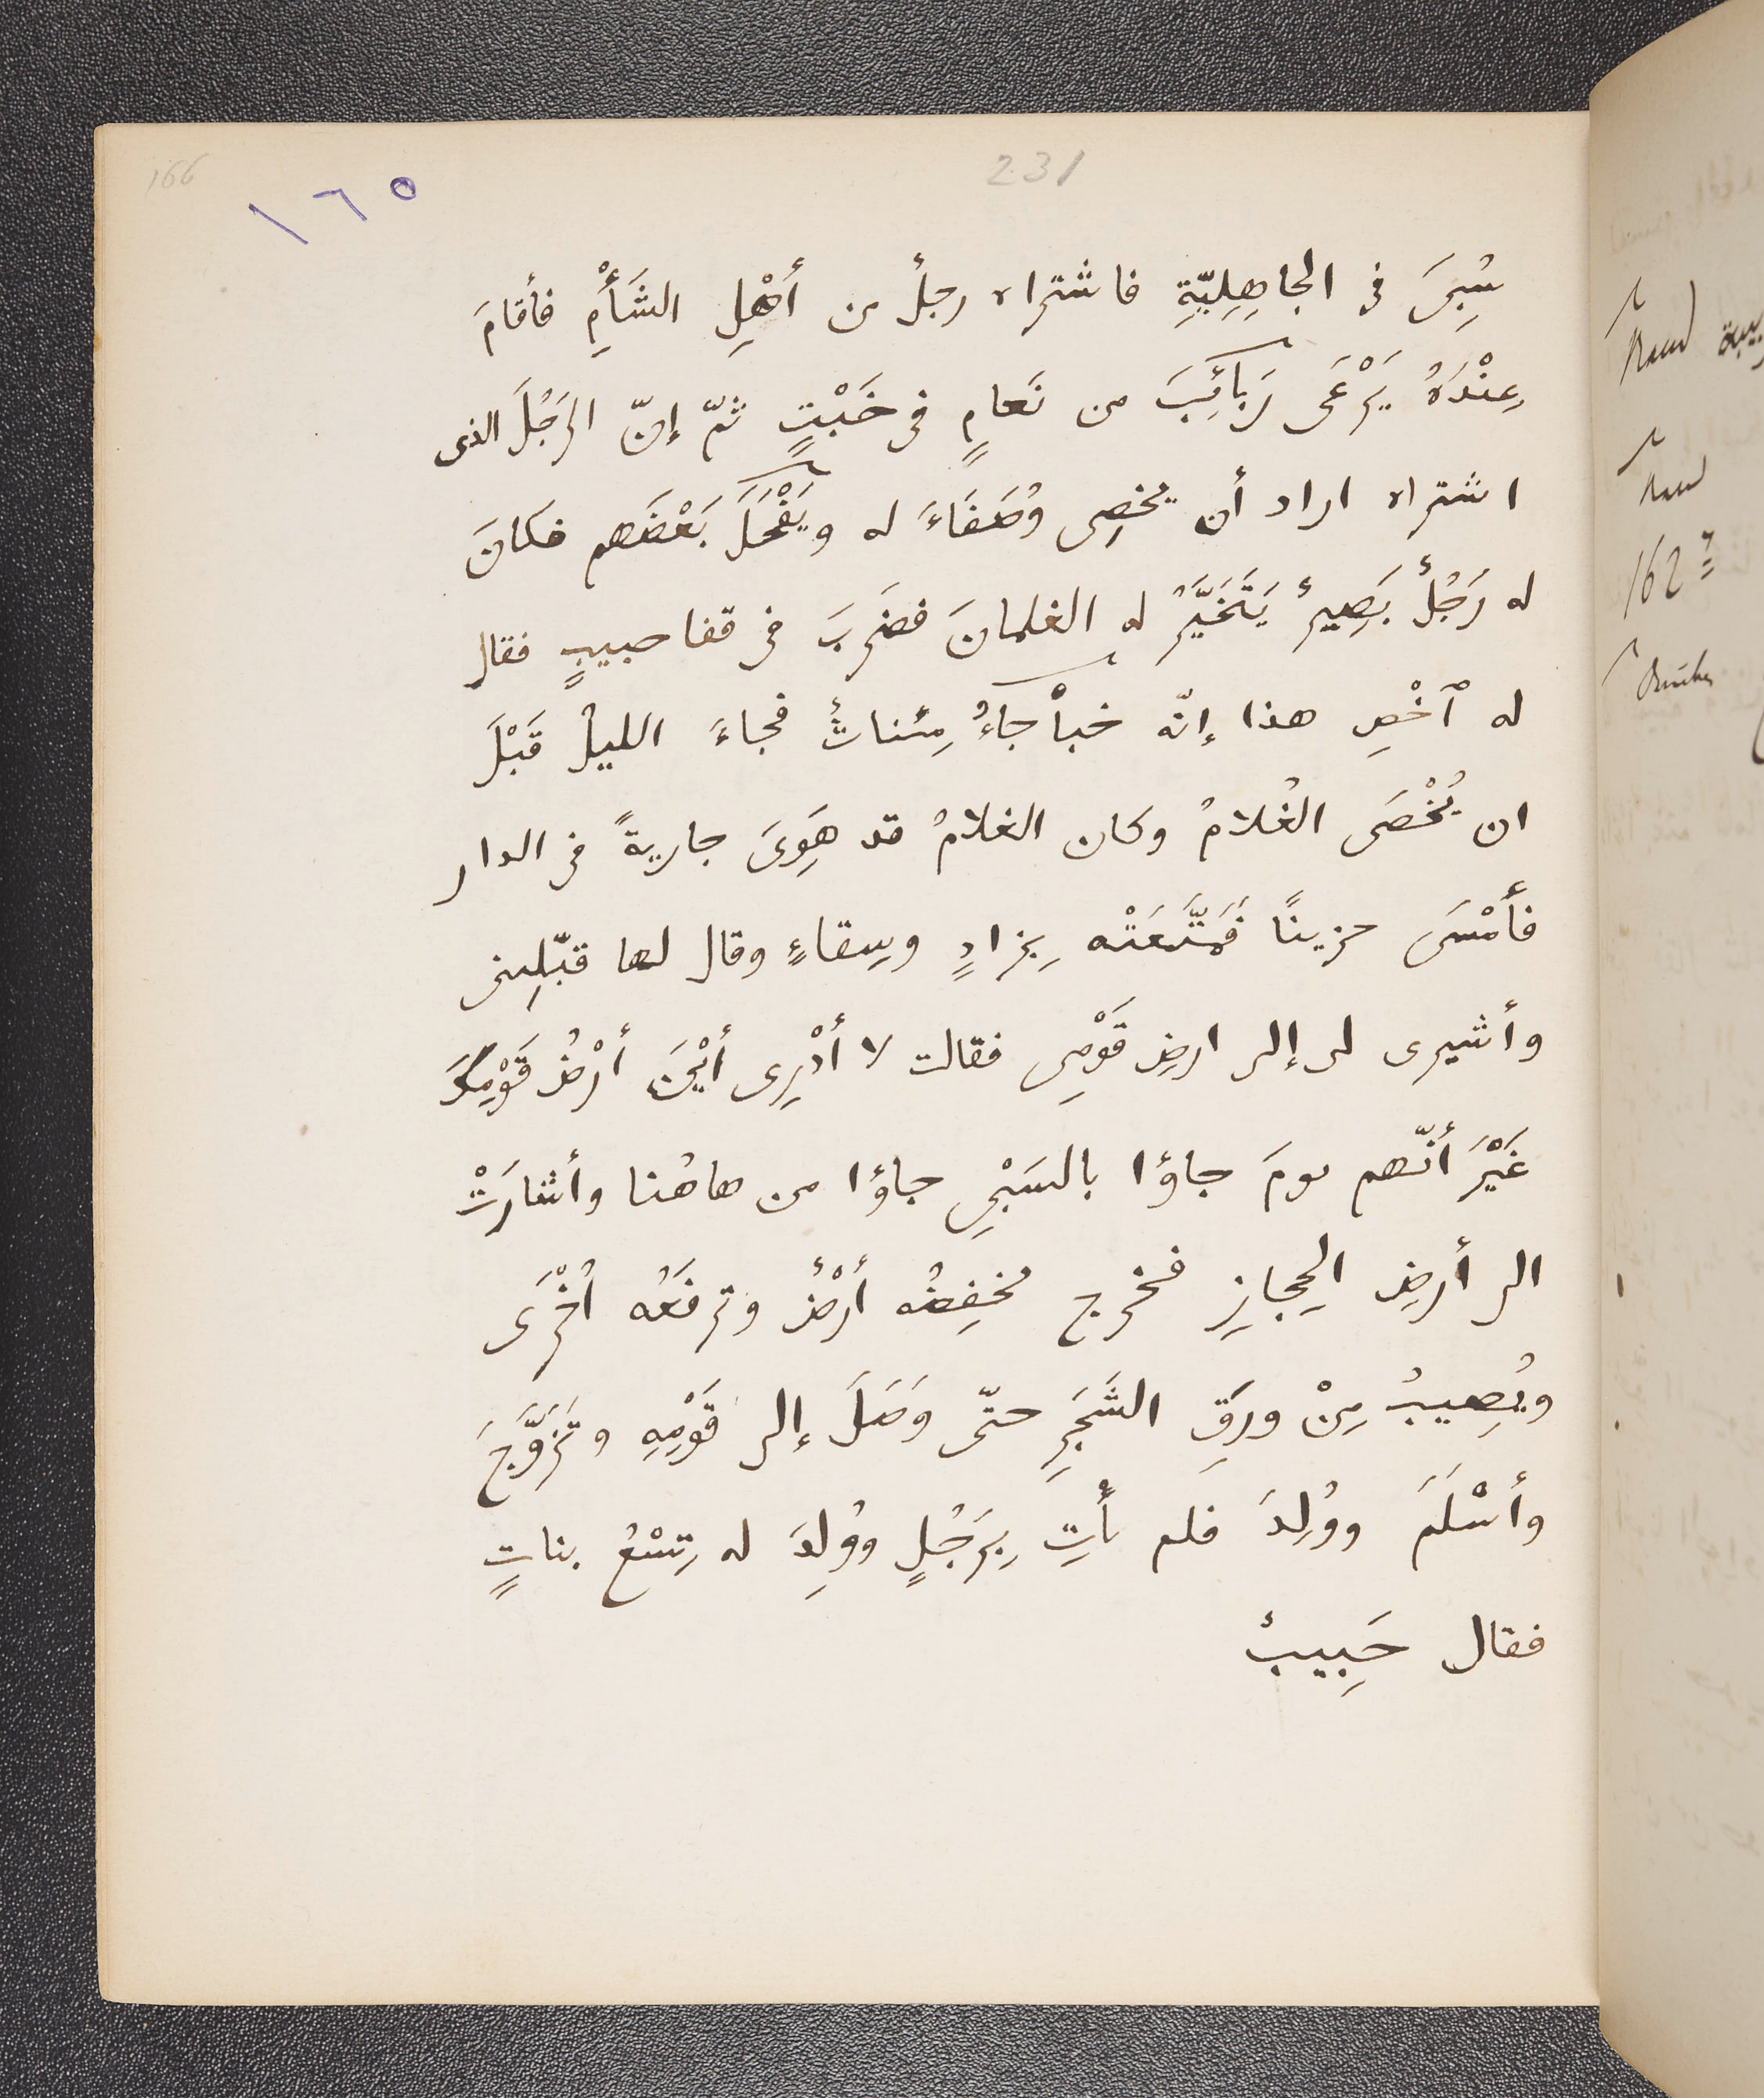 166
١٦٥
231
سُبِىَ فى الجاهِلِيّةِ فاشتراه رجلٌ من أهْلِ الشَأْمِ فأقامَ
عِنْدَهُ يَرْعَى رَبائِبَ من نَعامٍ فى خَبْتٍ ثمّ إنّ الرَجُلَ الذى
اشتراه اراد أن يخصِى وُصَفَاءَ له ويَفْحَلَ بَعْضَهم فكانَ
له رَجُلٌ بَصِيرٌ يَتَخَيَّرُ له الغلمانَ فضَرَبَ فى قفا حبيبٍ فقال
له ٱخْصِ هذا إنّه خبأْجاءُ مِئناثٌ فجاءَ الليلُ قَبْلَ
ان يُخْصَى الغُلامُ وكان الغلامُ قد هَوِىَ جاريةً فى الدار
فأَمْسَى حزينًا فَمَتَّعَتْه بِزادٍ وسِقاءٍ وقال لها قبّلِينى
وأشيرى لى إلى ارضِ قَوْمِى فقالت لا أدْرِى أيْنَ أرْضُ قَوْمِكَ
غَيْرَ أنّهم يومَ جاؤا بالسَبْىِ جاؤا من هاهُنا وأشارَتْ
الى أرضِ الحِجازِ فخرج تخفِضُه أرْضٌ وترفَعُه اُخْرَى
ويُصِيبُ مِنْ ورَقِ الشَجَرِ حتّى وَصَلَ إلى قَوْمِهِ وتَزَوَّجَ
وأسْلَمَ ووُلِدَ فلم يأْتِ بِرَجُلٍ ووُلِدَ له تِسْعُ بناتٍ
فقال حَبِيبٌ
162